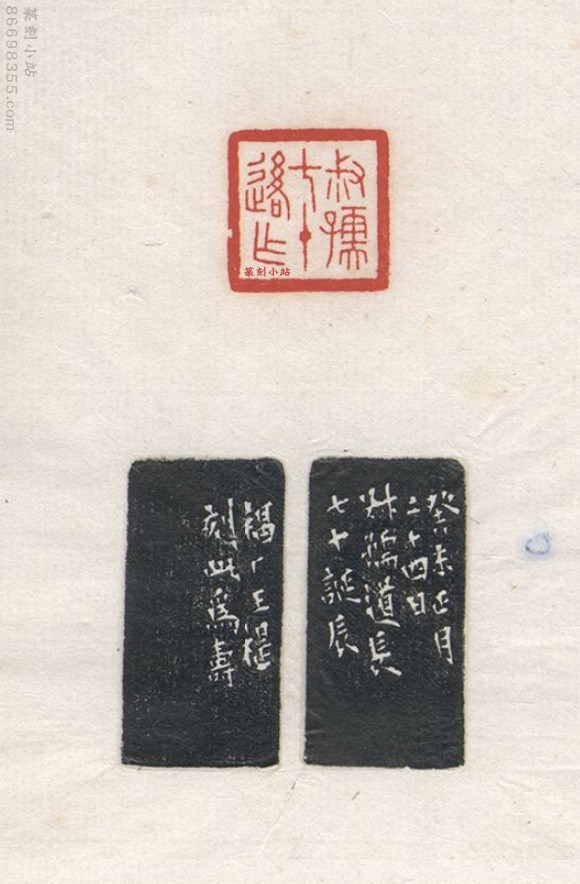 篆刻小站
86698355.com
叔孺
七十
後乍
篆刻小站
癸未正月
二十四日
叔孺道長
七十誕辰
福厂王禔
刻此爲壽